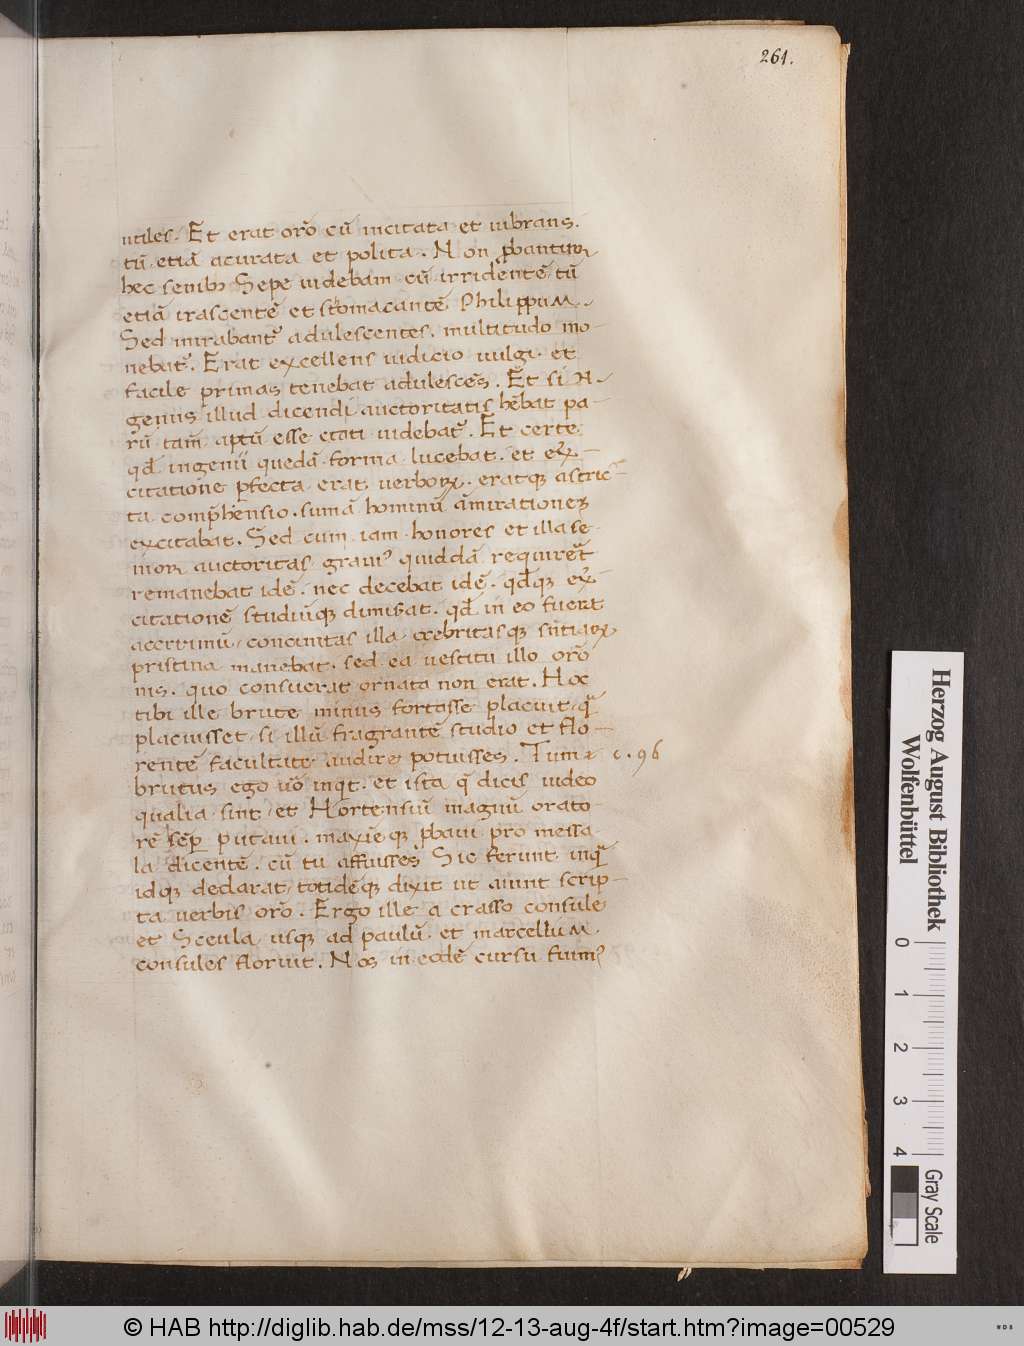 261.
utiles. Et erat orõ cũ incitata et uibrans.
tũ etiã acurata et polita. Non ꝓbantur
hec senibꝫ Sepe uidebam cũ irridentẽ tũ
etiã irascentẽ et stomacantẽ PhilippuM.
Sed mirabantꝰ adulescentes. multitudo mo-
uebatꝰ. Erat excellens iudicio uulgi. et
facile primas tenebat adulescẽs. Et si N-
genus illud dicendi auctoritatis hẽbat pa-
rũ tam̃ aptũ esse etati uidebatꝰ. Et certe
qđ ingenii quedã forma lucebat. et ex̃-
citatione ꝑfecta erat uerboꝝ. eratqꝫ astric-
ta comp̃hensio. sumã hominũ ãmirationes
excitabat. Sed cum iam honores et illa se
nior auctoritas grauiꝰ quiddã requireret
remanebat idẽ. nec decebat idẽ. qđqꝫ ex̃-
citationẽ studiũqꝫ dimis̃at. qđ in eo fuerat
acerrimũ. concinnitas illa crebritasqꝫ sñtiaꝝ
pristina manebat. sed ea uestitu illo orõ
nis. quo consuerat ornata non erat. Hoc
tibi ille brute minus fortasse placuit. q̃
placuisset. si illũ fragrantẽ studio et flo-
rentẽ facultate audire potuisses. Tum c. 96
brutus ego uõ inqt. et ista q̃ dicis uideo
qualia sint et Hortensiũ magnũ orato-
rẽ sẽꝑ putaui. maximẽqꝫ ꝓbaui pro messa
la dicentẽ. cũ tu affuisses Sic ferunt inq̃
idqꝫ declarat totidẽqꝫ dixit ut aiunt scrip-
ta uerbis orõ. Ergo ille a crasso consule
et Sceula usqꝫ ad paulũ et marcelluM.
consules floruit. Nos in eodẽ cursu fuimꝰ
Herzog August Bibliothek
Wolfenbüttel
0 1 2 3 4
Gray Scale
© HAB http://diglib.hab.de/mss/12-13-aug-4f/start.htm?image=00529